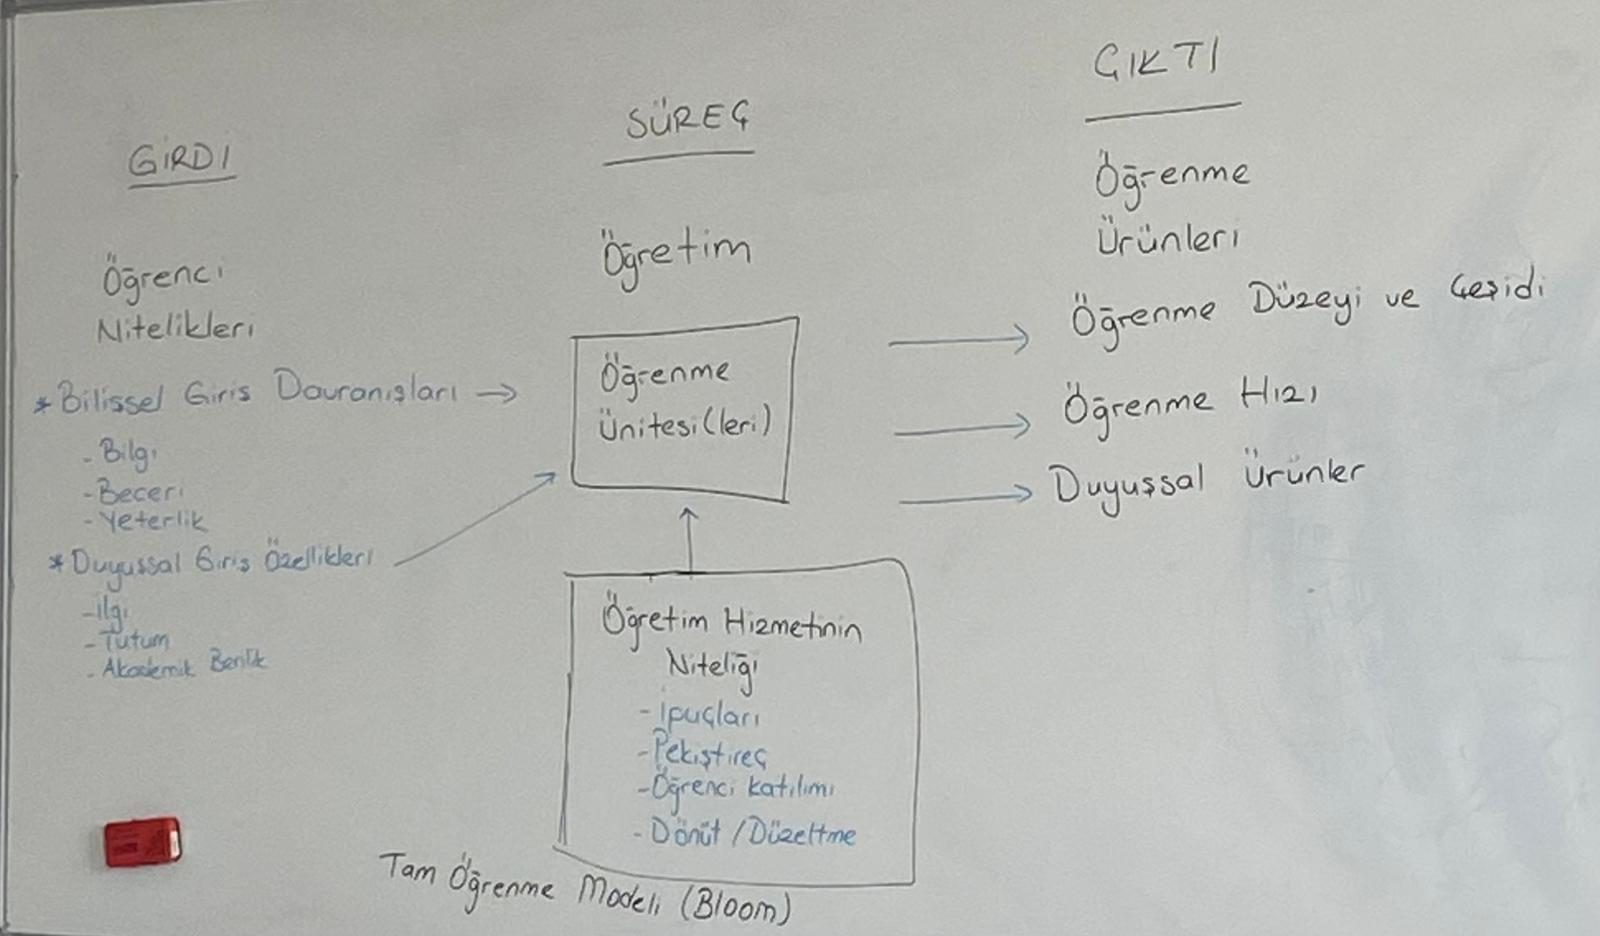 GİRDİ
Öğrenci
Nitelikleri
*Bilişsel Giriş Davranışları →
- Bilgi
- Beceri
- Yeterlik
*Duyuşsal Giriş Özellikleri
- İlgi
- Tutum
- Akademik Benlik
SÜREÇ
Öğretim
Öğrenme
Ünitesi(leri)
Öğretim Hizmetinin
Niteliği
- İpuçları
- Pekiştireç
- Öğrenci katılımı
- Dönüt / Düzeltme
ÇIKTI
Öğrenme
Ürünleri
Öğrenme Düzeyi ve Çeşidi
Öğrenme Hızı
Duyuşsal Ürünler
Tam Öğrenme Modeli (Bloom)